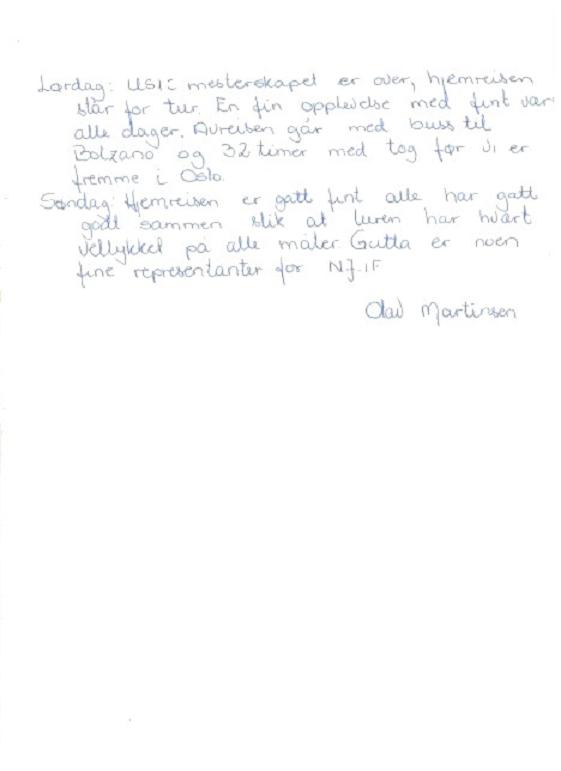 Lørdag: USIC mesterskapet er over, hjemreisen
står for tur. En fin opplevelse med fint vær
alle dager. Avreisen går med buss til
Bolzano og 32 timer med tog før vi er
fremme i Oslo.
Søndag: Hjemreisen er gått fint alle har gått
godt sammen slik at turen har hvært
vellykket på alle måter. Gutta er noen
fine representanter for NJ-IF
Olav Martinsen